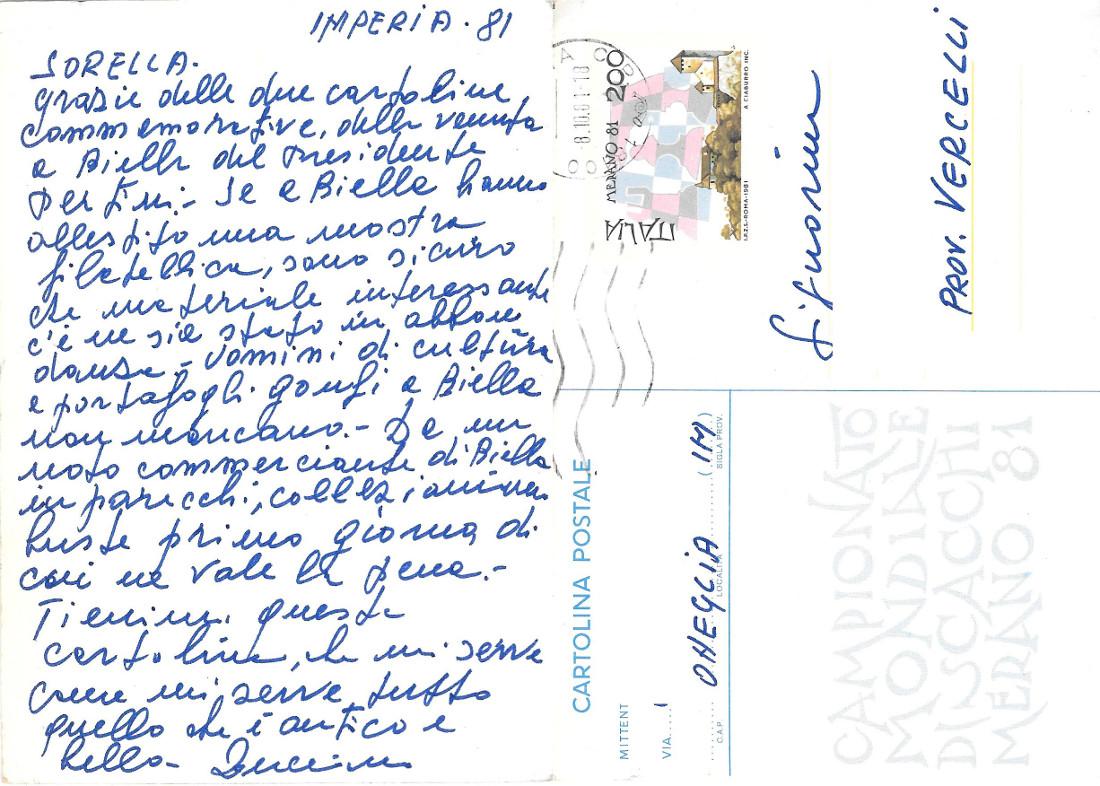 IMPERIA. 81
SORELLA.
grazie delle due cartoline
commemorative, della venuta
a Biella del Presidente
Pertini.- Se a Biella hanno
allestito una mostra
filatellica, sono sicuro
che materiale interessante
c'è ne sia stato in abbon
danza.- Uomini di cultura
e portafogli gonfi a Biella
non mancano.- Da un
noto commerciante di Biella
in parecchi, collezionavan
buste primo giorno di
cui ne vale la pena.-
Tienimi questa
cartolina, che mi serve
come mi serve tutto
quello che è antico e
bello-
8.10.81-18
ITALIA
MERANO 81 200
A. CIABURRO INC.
I.P.Z.S.-ROMA-1981
Signorina
PROV. VERCELLI
CARTOLINA POSTALE
MITTENT
VIA
ONEGLIA (IM)
C.A.P. LOCALITÀ SIGLA PROV.
CAMPIONATO
MONDIALE
DI SCACCHI
MERANO 81